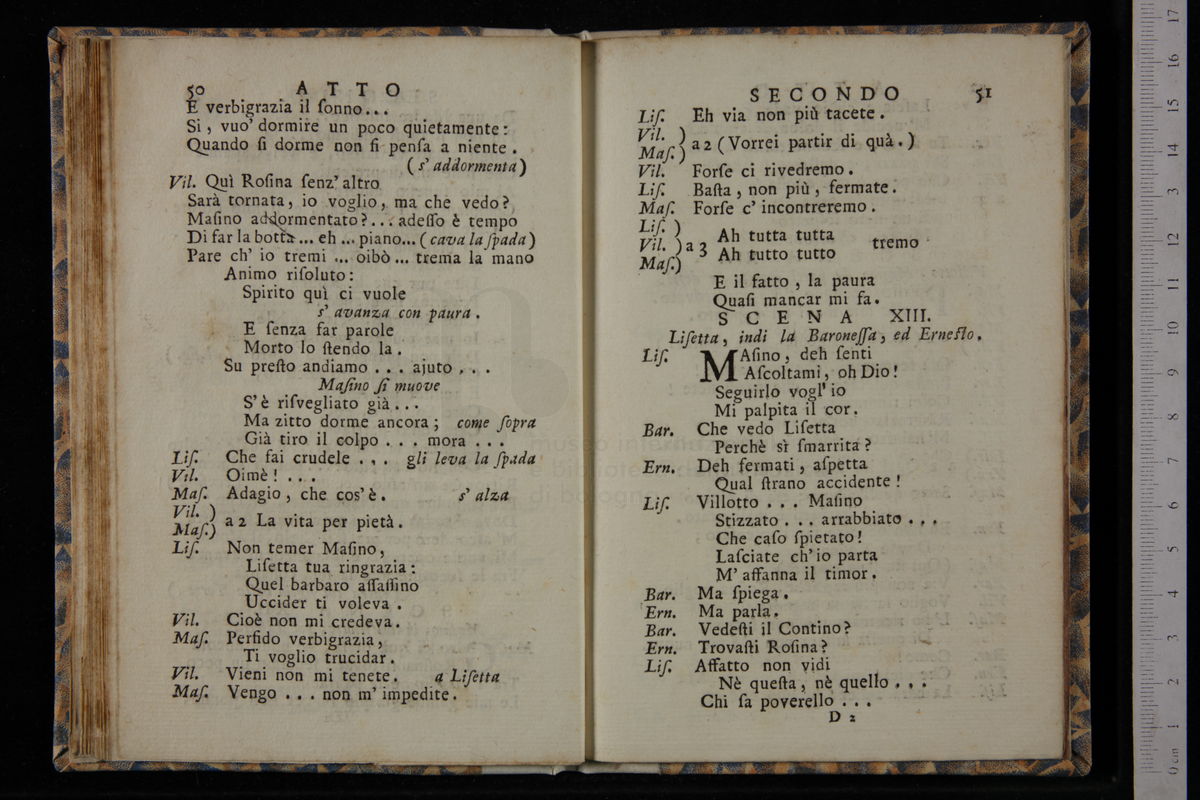 50 ATTO
E verbigrazia il ſonno...
Si, vuo' dormire un poco quietamente:
Quando ſi dorme non ſi penſa a niente.
(s' addormenta)
Vil. Quì Roſina ſenz' altro
Sarà tornata, io voglio, ma che vedo?
Maſino addormentato?... adeſſo è tempo
Di far la botta... eh... piano... (cava la ſpada)
Pare ch' io tremi... oibò... trema la mano
Animo riſoluto:
Spirito quì ci vuole
s' avanza con paura.
E ſenza far parole
Morto lo ſtendo la.
Su preſto andiamo... ajuto...
Maſino ſi muove
S' è riſvegliato già...
Ma zitto dorme ancora; come ſopra
Già tiro il colpo... mora...
Liſ. Che fai crudele... gli leva la ſpada
Vil. Oimè!...
Maſ. Adagio, che cos' è. s' alza
Vil. )
Maſ.) a 2 La vita per pietà.
Liſ. Non temer Maſino,
Liſetta tua ringrazia:
Quel barbaro aſſaſſino
Uccider ti voleva.
Vil. Cioè non mi credeva.
Maſ. Perfido verbigrazia,
Ti voglio trucidar.
Vil. Vieni non mi tenete. a Liſetta
Maſ. Vengo... non m' impedite.
SECONDO 51
Liſ. Eh via non più tacete.
Vil. )
Maſ.) a 2 (Vorrei partir di quà.)
Vil. Forſe ci rivedremo.
Liſ. Baſta, non più, fermate.
Maſ. Forſe c' incontreremo.
Liſ. ) Ah tutta tutta
Vil. ) a 3 tremo
Maſ.) Ah tutto tutto
E il fatto, la paura
Quaſi mancar mi fa.
SCENA XIII.
Liſetta, indi la Baroneſſa, ed Erneſto.
Liſ. MAſino, deh ſenti
Aſcoltami, oh Dio!
Seguirlo vogl' io
Mi palpita il cor.
Bar. Che vedo Liſetta
Perchè sì ſmarrita?
Ern. Deh fermati, aſpetta
Qual ſtrano accidente!
Liſ. Villotto... Maſino
Stizzato... arrabbiato...
Che caſo ſpietato!
Laſciate ch' io parta
M' affanna il timor.
Bar. Ma ſpiega.
Ern. Ma parla.
Bar. Vedeſti il Contino?
Ern. Trovaſti Roſina?
Liſ. Affatto non vidi
Nè queſta, nè quello...
Chi ſa poverello...
D 2